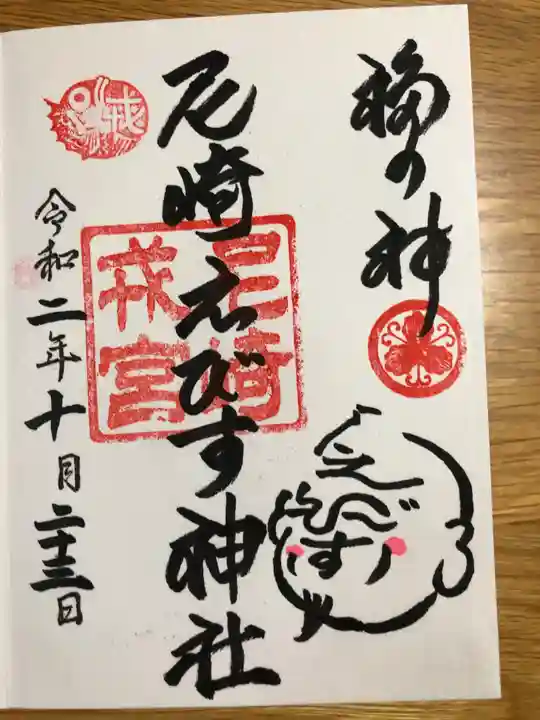 福の神
えびす
尼崎えびす神社
尼崎
戎宮
戎
令和二年十月二十三日